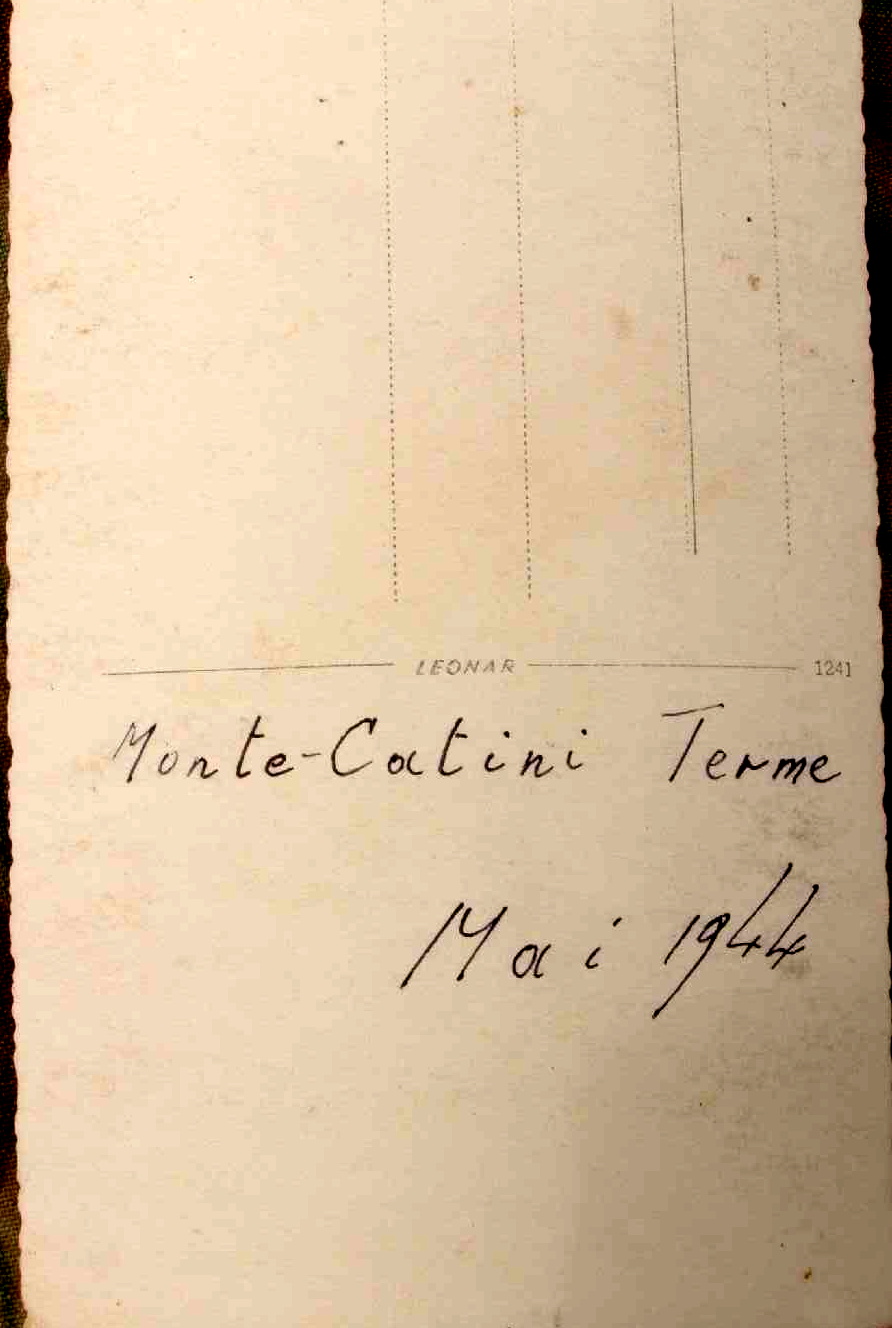 LEONAR 1241
Monte-Catini Terme
Mai 1944